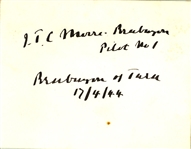 J.T.C. Moore-Brabazon
Pilot No 1
Brabazon of Tara
17/4/44